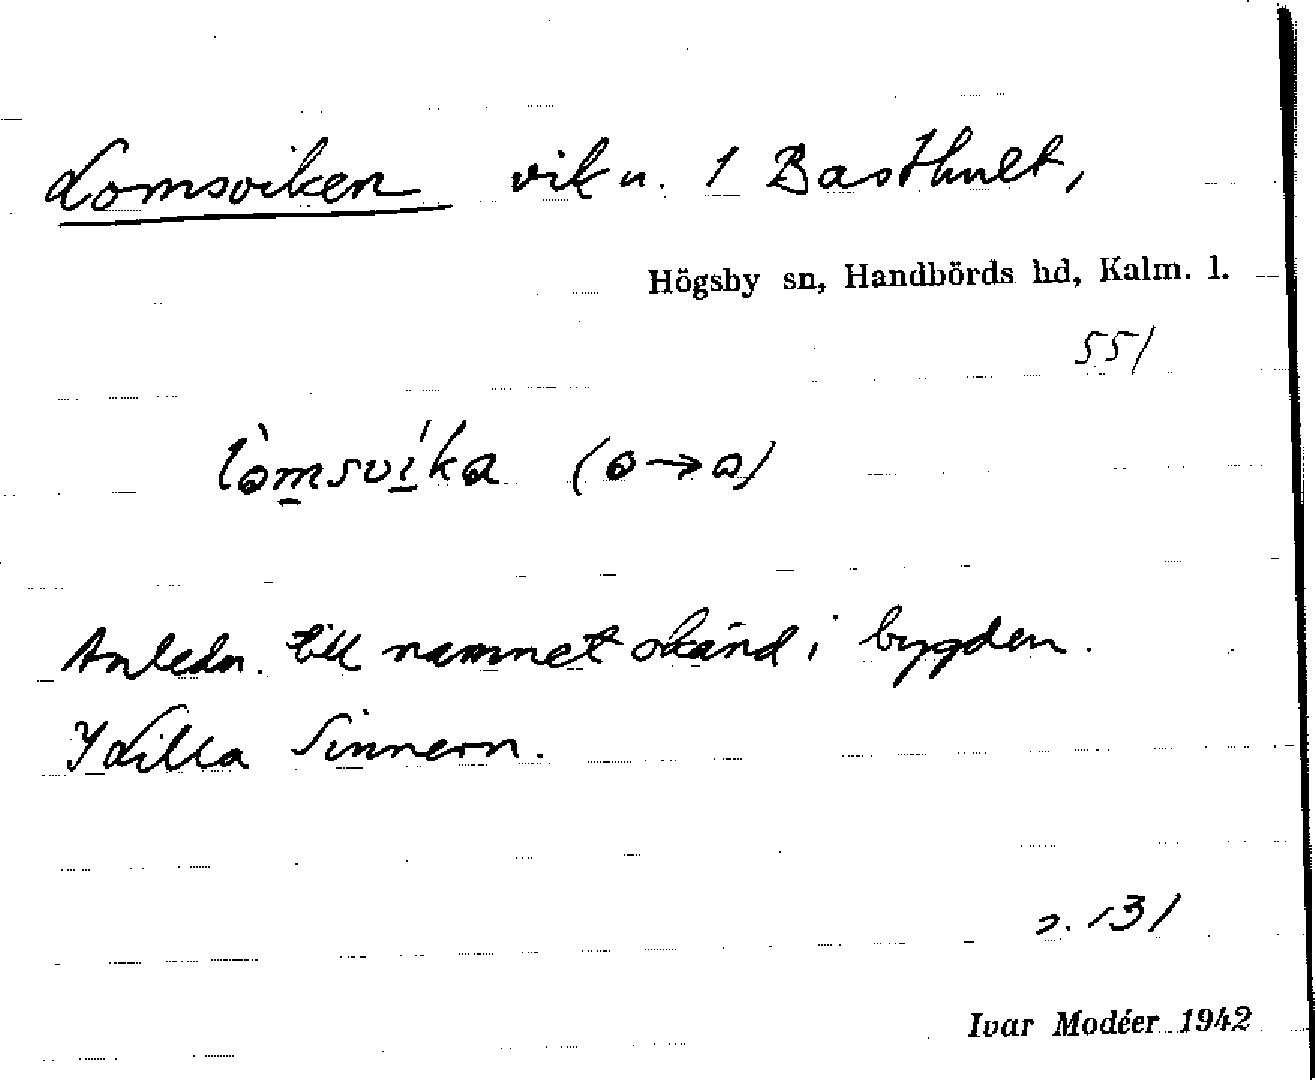 Lomsviken vik u. 1 Basthult,
Högsby sn, Handbörds hd, Kalm. l.
551
lòmsvíka (o→a)
Anledn. till namnet okänd i bygden.
I Lilla Sinnern.
s. 131
Ivar Modéer 1942